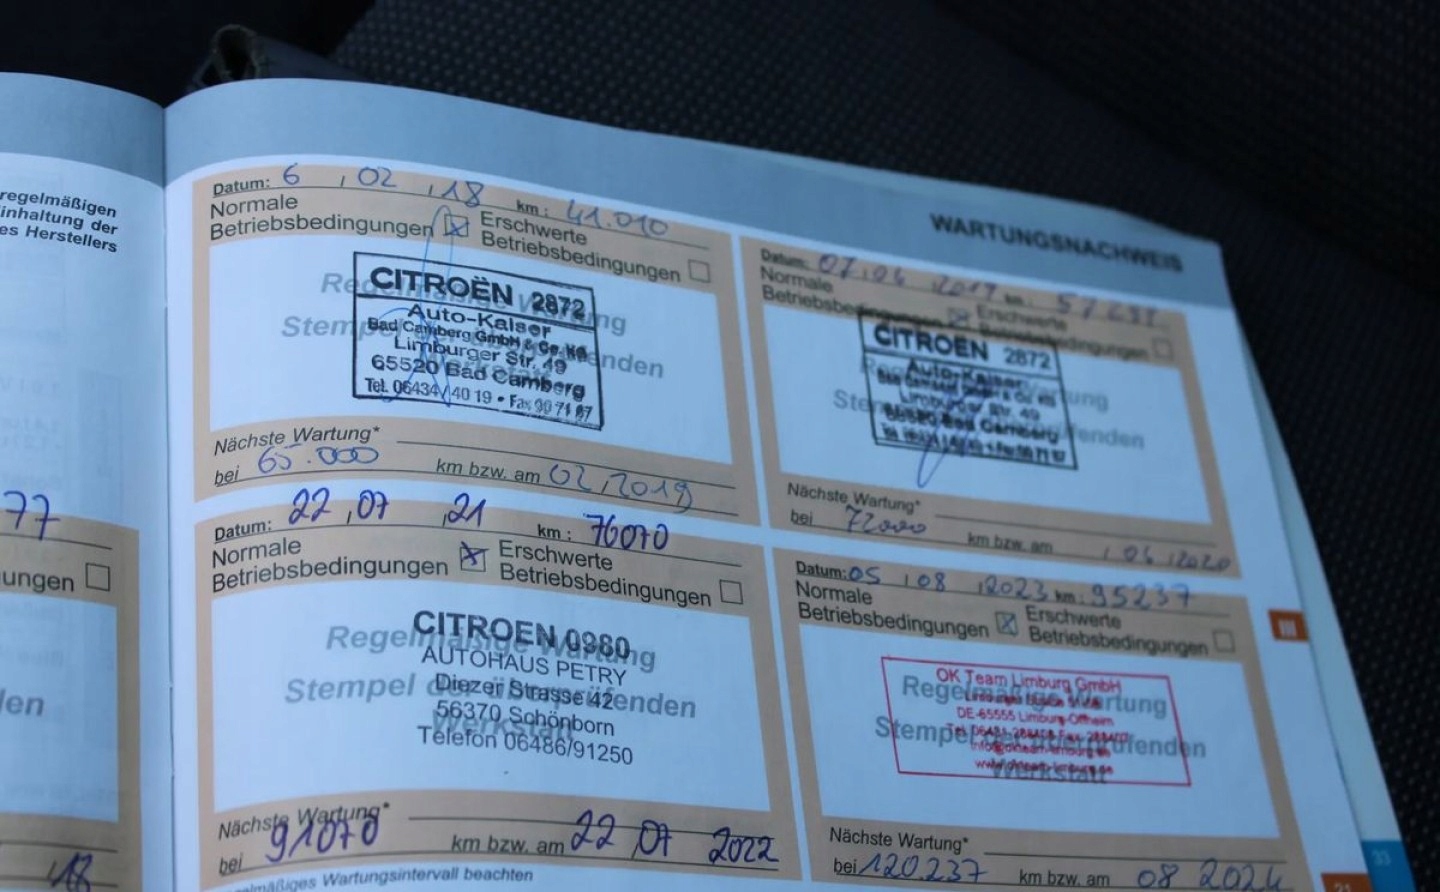 regelmäßigen
inhaltung der
es Herstellers
77
ungen
len
18
WARTUNGSNACHWEIS
Datum: 6 , 02 , 18 km : 41.010
Normale
Betriebsbedingungen
Erschwerte
Betriebsbedingungen
Regelmäßige Wartung
Stempel der überprüfenden
Werkstatt
CITROËN 2872
Auto-Kaiser
Bad Camberg GmbH & Co. KG
Limburger Str. 49
65520 Bad Camberg
Tel. 06434 / 40 19 • Fax 90 71 87
Nächste Wartung*
bei 65.000 km bzw. am 02,2019
Datum: 07,06 2019 km :
Normale
Betriebsbedingungen
Erschwerte
Betriebsbedingungen
Regelmäßige Wartung
Stempel der überprüfenden
CITROËN 2872
Auto-Kaiser
Bad Camberg GmbH & Co. KG
Limburger Str. 49
65520 Bad Camberg
Nächste Wartung*
bei 72000 km bzw. am , 06 ,2020
Datum: 22 ,07 ,21 km : 76070
Normale
Betriebsbedingungen
Erschwerte
Betriebsbedingungen
Regelmäßige Wartung
Stempel der überprüfenden
Werkstatt
CITROEN 0980
AUTOHAUS PETRY
Diezer Strasse 42
56370 Schönborn
Telefon 06486/91250
Nächste Wartung*
bei 91070 km bzw. am 22 ,07 2022
elmäßiges Wartungsintervall beachten
Datum: 05 ,08 ,2023 km : 95237
Normale
Betriebsbedingungen
Erschwerte
Betriebsbedingungen
Regelmäßige Wartung
Stempel der überprüfenden
Werkstatt
OK Team Limburg GmbH
DE-65555 Limburg-Offheim
www.okteam-limburg.de
Nächste Wartung*
bei 120.237 km bzw. am 08 2024
III
33